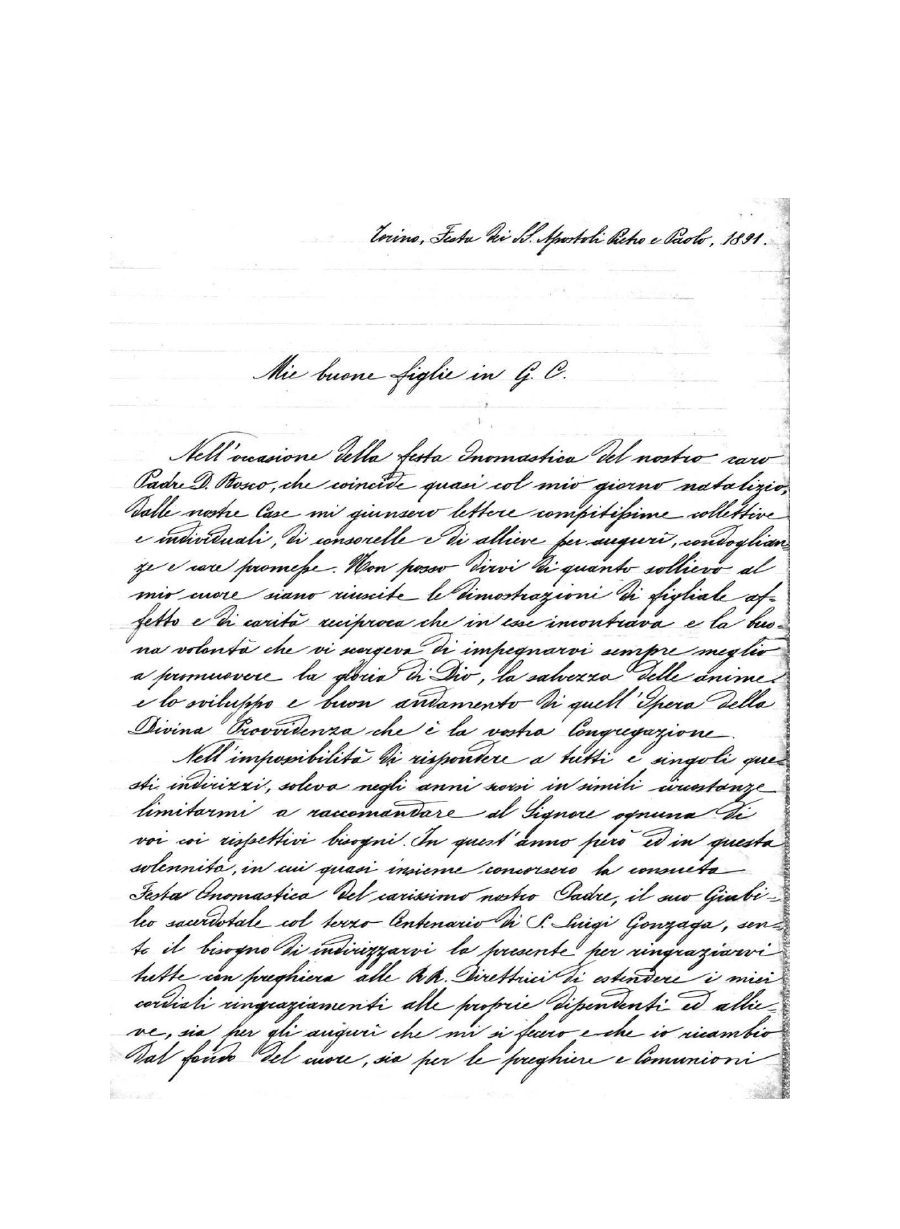 Torino, Festa dei SS. Apostoli Pietro e Paolo, 1891.
Mie buone figlie in G. C.
Nell'occasione della festa Onomastica del nostro caro
Padre D. Bosco, che coincide quasi col mio giorno natalizio,
dalle nostre Case mi giunsero lettere compitissime collettive
e individuali, di consorelle e di allieve per auguri, condoglian=
ze e care promesse. Non posso dirvi di quanto sollievo al
mio cuore siano riuscite le dimostrazioni di figliale af=
fetto e di carità reciproca che in esse incontrava e la buo=
na volontà che vi scorgeva di impegnarvi sempre meglio
a promuovere la gloria di Dio, la salvezza delle anime
e lo sviluppo e buon andamento di quell'Opera della
Divina Provvidenza che è la vostra Congregazione.
Nell'impossibilità di rispondere a tutti e singoli que=
sti indirizzi, soleva negli anni scorsi in simili circostanze
limitarmi a raccomandare al Signore ognuna di
voi coi rispettivi bisogni. In quest'anno però ed in questa
solennità, in cui quasi insieme concorsero la consueta
Festa Onomastica del carissimo nostro Padre, il suo Giubi=
leo sacerdotale col terzo Centenario di S. Luigi Gonzaga, sen=
to il bisogno di indirizzarvi la presente per ringraziarvi
tutte con preghiera alle RR. Direttrici di estendere i miei
cordiali ringraziamenti alle proprie dipendenti ed allie=
ve, sia per gli auguri che mi si fecero e che io ricambio
dal fondo del cuore, sia per le preghiere e Comunioni